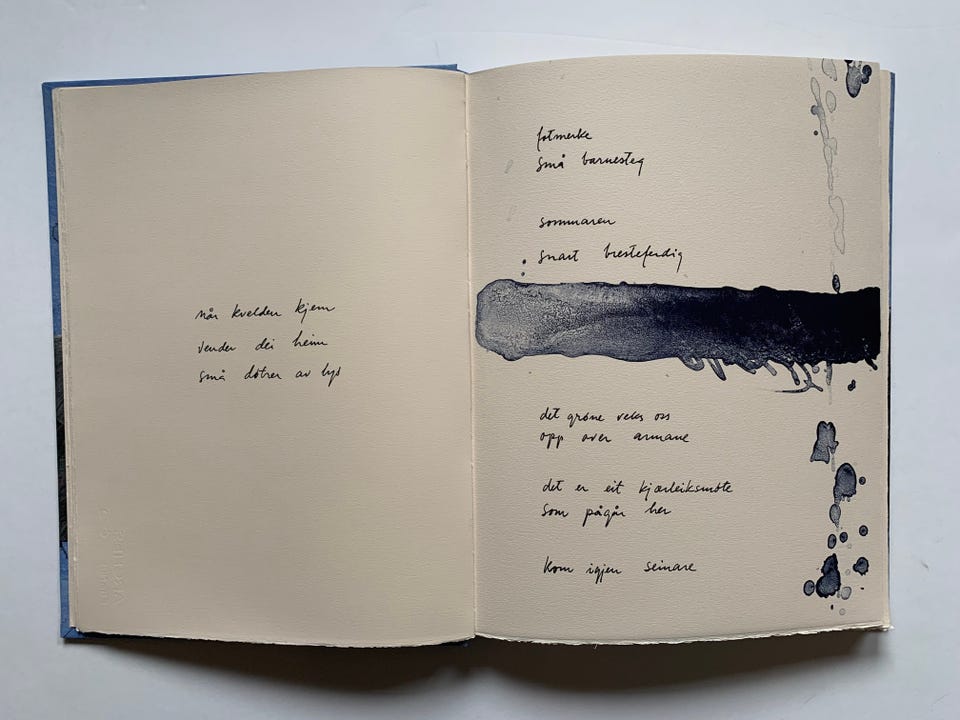 når kvelden kjem
vender dei heim
små døtrer av lys
fotmerke
små barnesteg
sommaren
snart bresteferdig
det grøne veks oss
opp over armane
det er eit kjærleiksmøte
som pågår her
kom igjen seinare